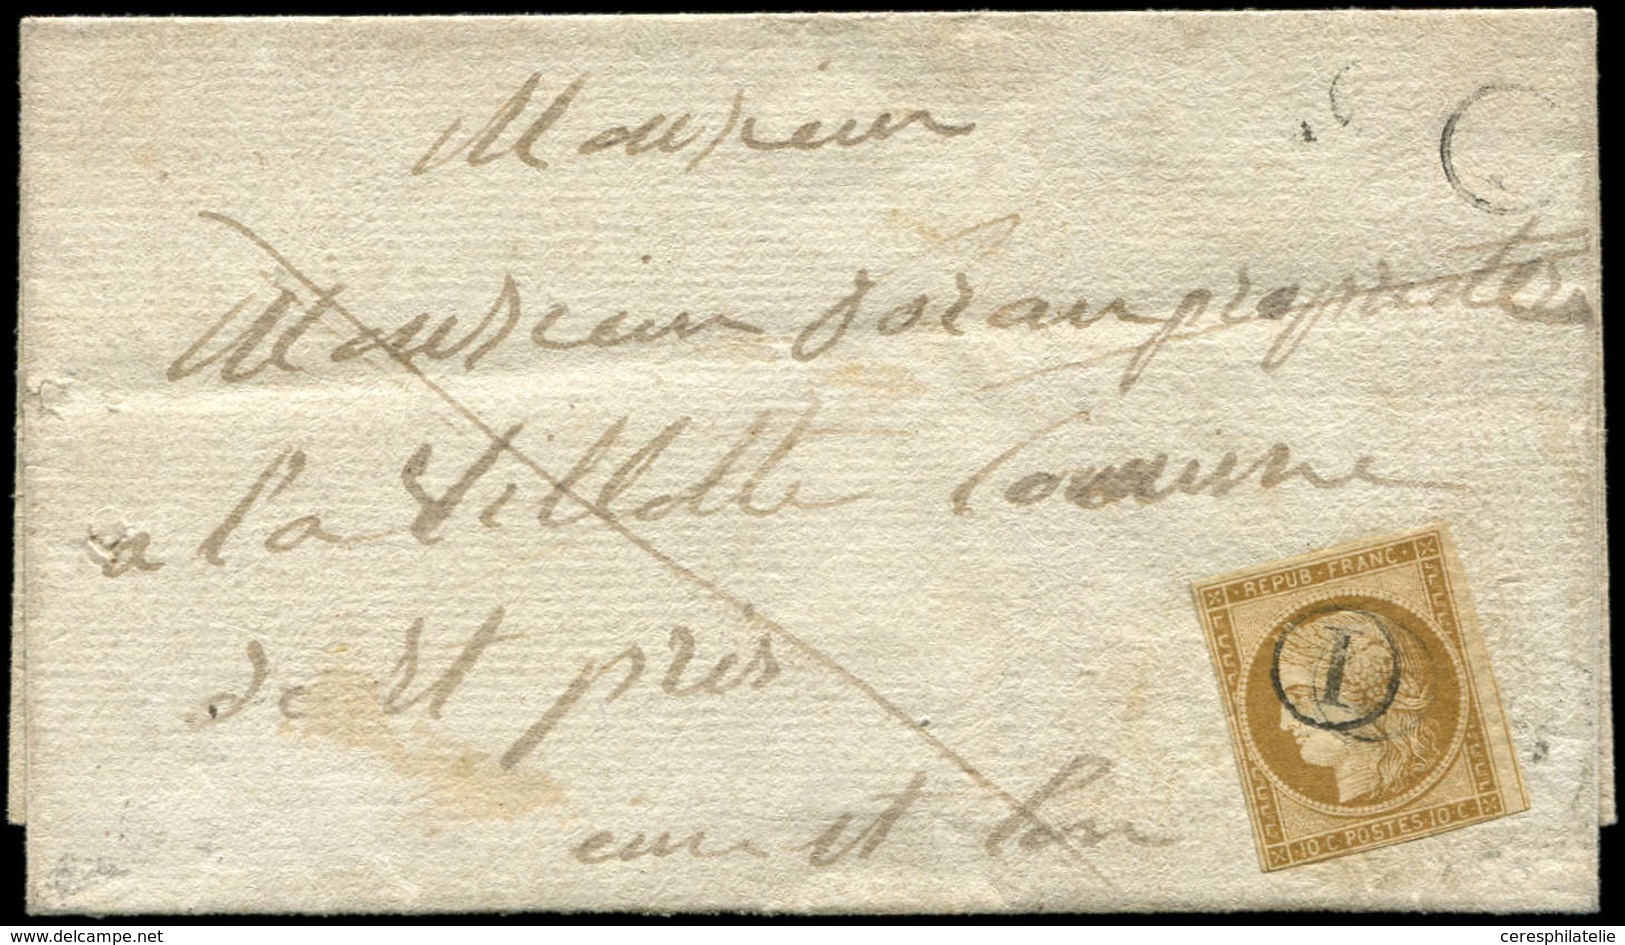 Monsieur
Monsieur
a la Villette Commune
de St pris
eure et loir
· REPUB · FRANC ·
I
· 10 C. POSTES. 10 C ·
www.delcampe.net
ceresphilatelie